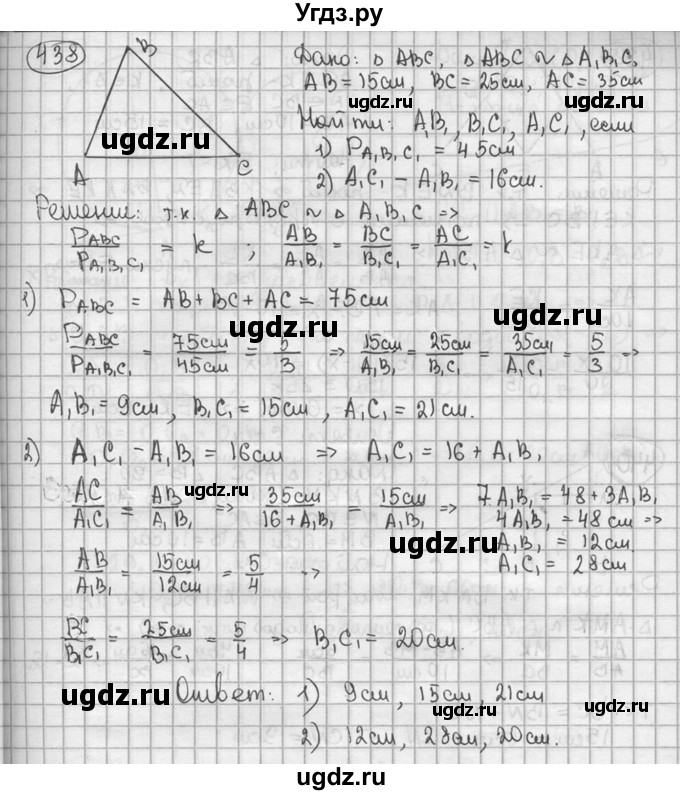 Угдз.ру
438
B
A
C
Дано: △ ABC, △ ABC ~ △ A₁B₁C₁
AB = 15см, BC = 25см, AC = 35см
ugdz.ru
Найти: A₁B₁, B₁C₁, A₁C₁, если
ugdz.ru
1) P_A₁B₁C₁ = 45см
2) A₁C₁ - A₁B₁ = 16см.
ugdz.ru
Решение: т.к. △ ABC ~ △ A₁B₁C =>
P_ABC / P_A₁B₁C₁ = k ; AB / A₁B₁ = BC / B₁C₁ = AC / A₁C₁ = k
ugdz.ru
1) P_ABC = AB + BC + AC = 75см
ugdz.ru
P_ABC / P_A₁B₁C₁ = 75см / 45см = 5 / 3 => 15см / A₁B₁ = 25см / B₁C₁ = 35см / A₁C₁ = 5 / 3 =>
ugdz.ru
A₁B₁ = 9см, B₁C₁ = 15см, A₁C₁ = 21см.
2) A₁C₁ - A₁B₁ = 16см => A₁C₁ = 16 + A₁B₁
ugdz.ru
AC / A₁C₁ = AB / A₁B₁ => 35см / 16 + A₁B₁ = 15см / A₁B₁ => 7A₁B₁ = 48 + 3A₁B₁
ugdz.ru
4A₁B₁ = 48 см =>
ugdz.ru
A₁B₁ = 12см.
A₁C₁ = 28см
AB / A₁B₁ = 15см / 12см = 5 / 4 =>
BC / B₁C₁ = 25см / B₁C₁ = 5 / 4 => B₁C₁ = 20см.
ugdz.ru
Ответ: 1) 9см, 15см, 21см
ugdz.ru
2) 12см, 28см, 20см.
ugdz.ru
ugdz.ru